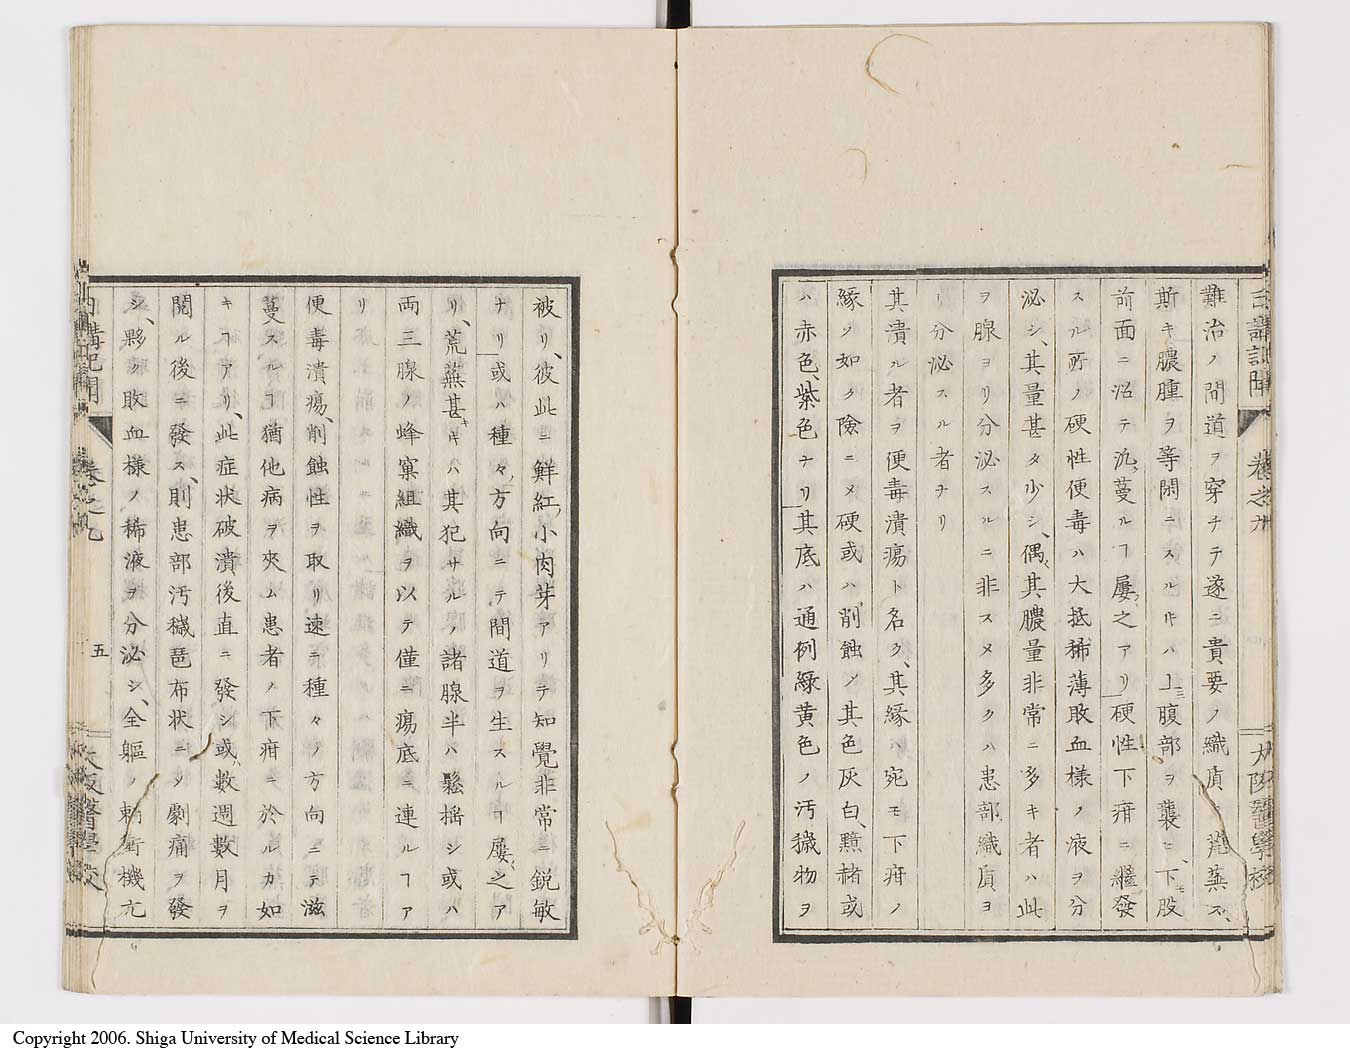 日講記聞 卷之九 大阪醫學校
難治ノ間道ヲ穿チテ遂ニ貴要ノ織質ヲ荒蕪ス、
斯キ膿腫ヲ等閑ニスル𪜈ハ上腹部ヲ襲ヒ、下股
前面ニ沿テ氿蔓ルヿ屢之アリ硬性下疳ニ繼發
スル所ノ硬性便毒ハ大抵稀薄敗血様ノ液ヲ分
泌シ、其量甚タ少シ、偶其膿量非常ニ多キ者ハ此
ヲ腺ヨリ分泌スルニ非スメ多クハ患部織質ヨ
リ分泌スル者ナリ
其潰ル者ヲ便毒潰瘍ト名ク、其縁宛モ下疳ノ
縁ノ如ク險ニメ硬或ハ削蝕ノ其色灰白、黯赭或
ハ赤色、紫色ナリ其底ハ通例緑黄色ノ汚穢物ヲ
被リ、彼此ニ鮮紅小肉芽アリテ知覺非常ニ鋭敏
ナリ或ハ種々ノ方向ニテ間道ヲ生スルヿ屢之ア
リ、荒蕪甚キハ其犯サルノ諸腺半ハ鬆揺シ或ハ
両三腺ノ蜂窠組織ヲ以テ僅ニ瘍底ニ連ルヿア
リ
便毒潰瘍、削蝕性ヲ取リ速ニ種々ノ方向ニテ滋
蔓スルヿ猶他病ヲ夾ム患者ノ下疳ニ於ルカ如
キヿアリ、此症状破潰後直ニ發シ或數週數月ヲ
閲ル後ニ發ス、則患部汚穢琶布状ニシ劇痛ヲ發
シ、夥ク敗血様ノ稀液ヲ分泌シ、全軀ノ刺衝機亢
日講記聞 卷之九 五 大阪醫學校
Copyright 2006. Shiga University of Medical Science Library